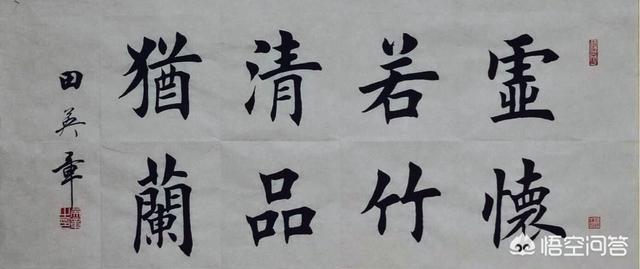 虛懷
若竹
清品
猶蘭
田英章
悟空问答